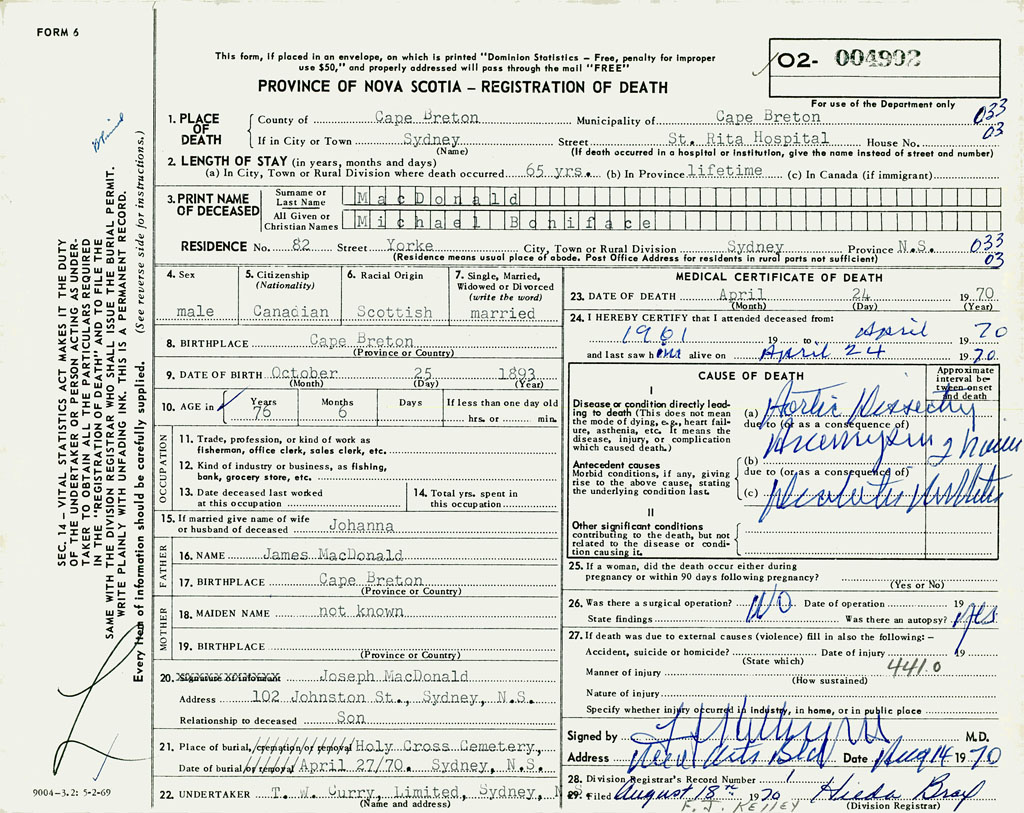 FORM 6
This form, if placed in an envelope, on which is printed "Dominion Statistics - Free, penalty for improper
use $50," and properly addressed will pass through the mail "FREE"
PROVINCE OF NOVA SCOTIA - REGISTRATION OF DEATH
02- 004902
For use of the Department only
1. PLACE OF DEATH County of Cape Breton Municipality of Cape Breton 033
If in City or Town Sydney Street St. Rita Hospital House No. 03
(Name) (If death occurred in a hospital or institution, give the name instead of street and number)
2. LENGTH OF STAY (in years, months and days)
(a) In City, Town or Rural Division where death occurred 65 yrs. (b) In Province lifetime (c) In Canada (if immigrant)
3. PRINT NAME OF DECEASED Surname or Last Name MacDonald
All Given or Christian Names Michael Boniface
RESIDENCE No. 82 Street Yorke City, Town or Rural Division Sydney Province N.S. 033
(Residence means usual place of abode. Post Office Address for residents in rural parts not sufficient) 03
4. Sex
male
5. Citizenship
(Nationality)
Canadian
6. Racial Origin
Scottish
7. Single, Married,
Widowed or Divorced
(write the word)
married
8. BIRTHPLACE Cape Breton
(Province or Country)
9. DATE OF BIRTH October 25 1893
(Month) (Day) (Year)
10. AGE in Years Months Days If less than one day old
76 6 hrs. or min.
OCCUPATION
11. Trade, profession, or kind of work as
fisherman, office clerk, sales clerk, etc.
12. Kind of industry or business, as fishing,
bank, grocery store, etc.
13. Date deceased last worked
at this occupation
14. Total yrs. spent in
this occupation
15. If married give name of wife
or husband of deceased Johanna
FATHER
16. NAME James MacDonald
17. BIRTHPLACE Cape Breton
(Province or Country)
MOTHER
18. MAIDEN NAME not known
19. BIRTHPLACE
(Province or Country)
20. Signature of informant Joseph MacDonald
Address 102 Johnston St., Sydney, N.S.
Relationship to deceased Son
21. Place of burial, cremation or removal Holy Cross Cemetery,
Date of burial or removal April 27/70. Sydney, N.S.
22. UNDERTAKER T. W. Curry, Limited, Sydney, N.S.
(Name and address)
MEDICAL CERTIFICATE OF DEATH
23. DATE OF DEATH April 24 1970
(Month) (Day) (Year)
24. I HEREBY CERTIFY that I attended deceased from:
1961 19 to April 70
and last saw him alive on April 24 1970
CAUSE OF DEATH
Approximate
interval be-
tween onset
and death
I
Disease or condition directly lead-
ing to death (This does not mean
the mode of dying, e.g., heart fail-
ure, asthenia, etc. It means the
disease, injury, or complication
which caused death.)
(a) Aortic
due to (or as a consequence of)
Antecedent causes
Morbid conditions, if any, giving
rise to the above cause, stating
the underlying condition last.
(b)
due to (or as a consequence of)
(c)
II
Other significant conditions
contributing to the death, but not
related to the disease or condi-
tion causing it.
25. If a woman, did the death occur either during
pregnancy or within 90 days following pregnancy?
(Yes or No)
26. Was there a surgical operation? No Date of operation 19
State findings Was there an autopsy? Yes
27. If death was due to external causes (violence) fill in also the following: -
Accident, suicide or homicide? Date of injury 19
(State which)
Manner of injury 441.0
(How sustained)
Nature of injury
Specify whether injury occurred in industry, in home, or in public place
Signed by M.D.
Address Medical Arts Bld Date Aug 14 1970
28. Division Registrar's Record Number
29. Filed August 18th 1970 Hilda
F. J. KELLEY (Division Registrar)
SEC. 14 - VITAL STATISTICS ACT MAKES IT THE DUTY
OF THE UNDERTAKER OR PERSON ACTING AS UNDER-
TAKER TO OBTAIN ALL THE PARTICULARS REQUIRED
IN THE "REGISTRATION OF DEATH" AND TO FILE THE
SAME WITH THE DIVISION REGISTRAR WHO SHALL ISSUE THE BURIAL PERMIT.
WRITE PLAINLY WITH UNFADING INK. THIS IS A PERMANENT RECORD.
Every item of information should be carefully supplied. (See reverse side for instructions.)
9004-3.2: 5-2-69